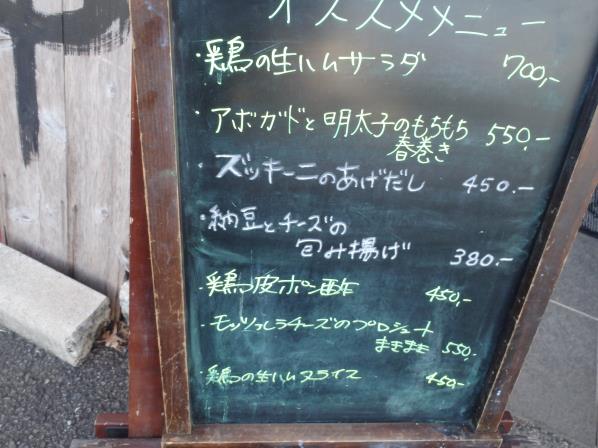 オススメメニュー
・鶏の生ハムサラダ 700,-
・アボガドと明太子のもちもち 550.-
春巻き
・ズッキーニのあげだし 450.-
・納豆とチーズの
包み揚げ 380.-
・鶏皮ポン酢 450,-
・モッツァレラチーズのプロシュート
まきまき 550.-
・鶏の生ハムスライス 450,-